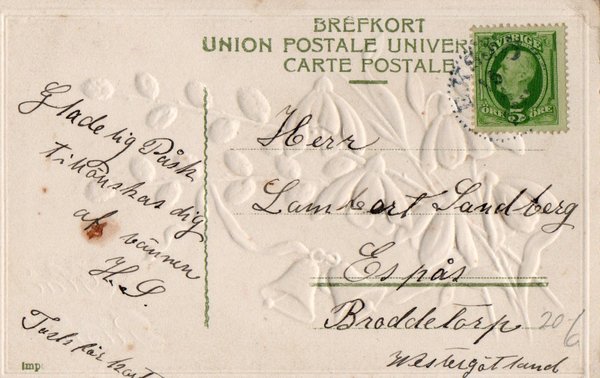 BREFKORT
UNION POSTALE UNIVER
CARTE POSTALE
SVERIGE
ÖRE 5 ÖRE
Gladelig Påsk
tillönskas dig
af vännen
H.S.
Herr
Lambert Sandberg
Espås
Broddetorp
Westergötland
20-6
Imp